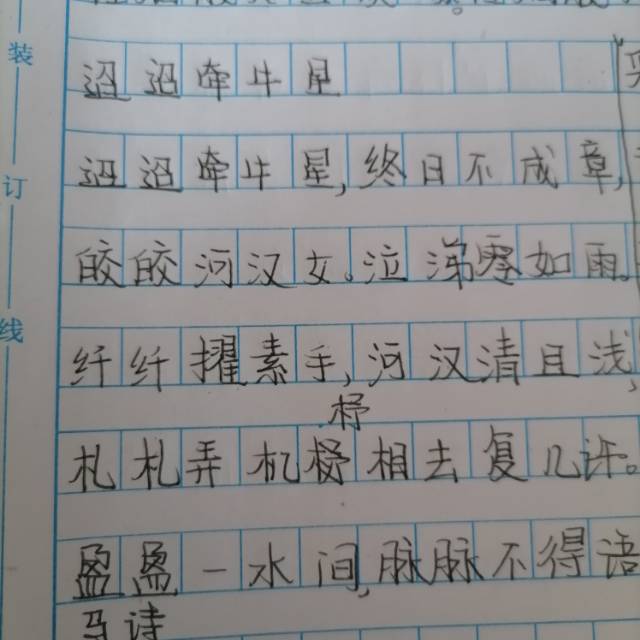 装
订
线
迢迢牵牛星
迢迢牵牛星,终日不成章,
皎皎河汉女。泣涕零如雨。
纤纤擢素手,河汉清且浅,
杼
札札弄机杼相去复几许。
盈盈一水间,脉脉不得语